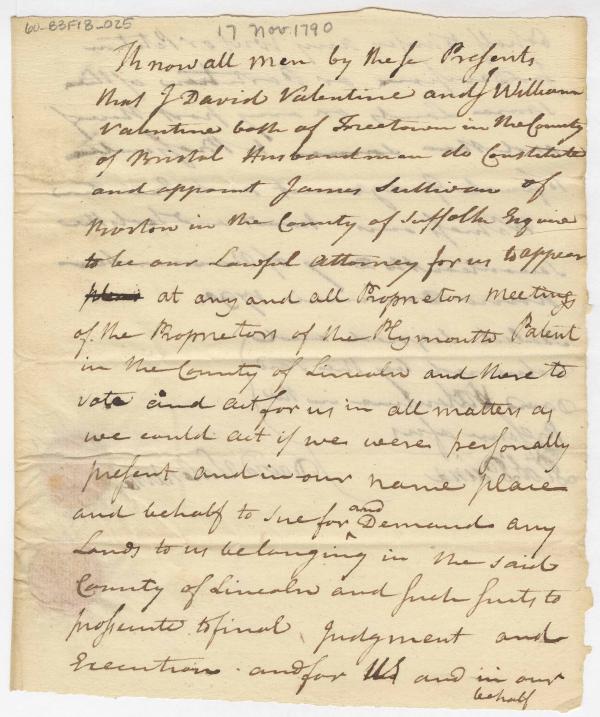 60-83F18-025
17 Nov. 1790
Know all men by these Presents
that I David Valentine and I William
Valentine both of Freetown in the County
of Bristol Husbandmen do Constitute
and appoint James Sullivan of
Boston in the County of Suffolk Esquire
to be our Lawful attorney for us to appear
at any and all Proprietors Meetings
of the Proprietors of the Plymouth Patent
in the County of Lincoln and there to
vote and act for us in all matters as
we could act if we were personally
present and in our name place
and behalf to sue for and Demand any
Lands to us belonging in the said
County of Lincoln and such suits to
prossecute to final Judgment and
Execution and for us and in our
behalf